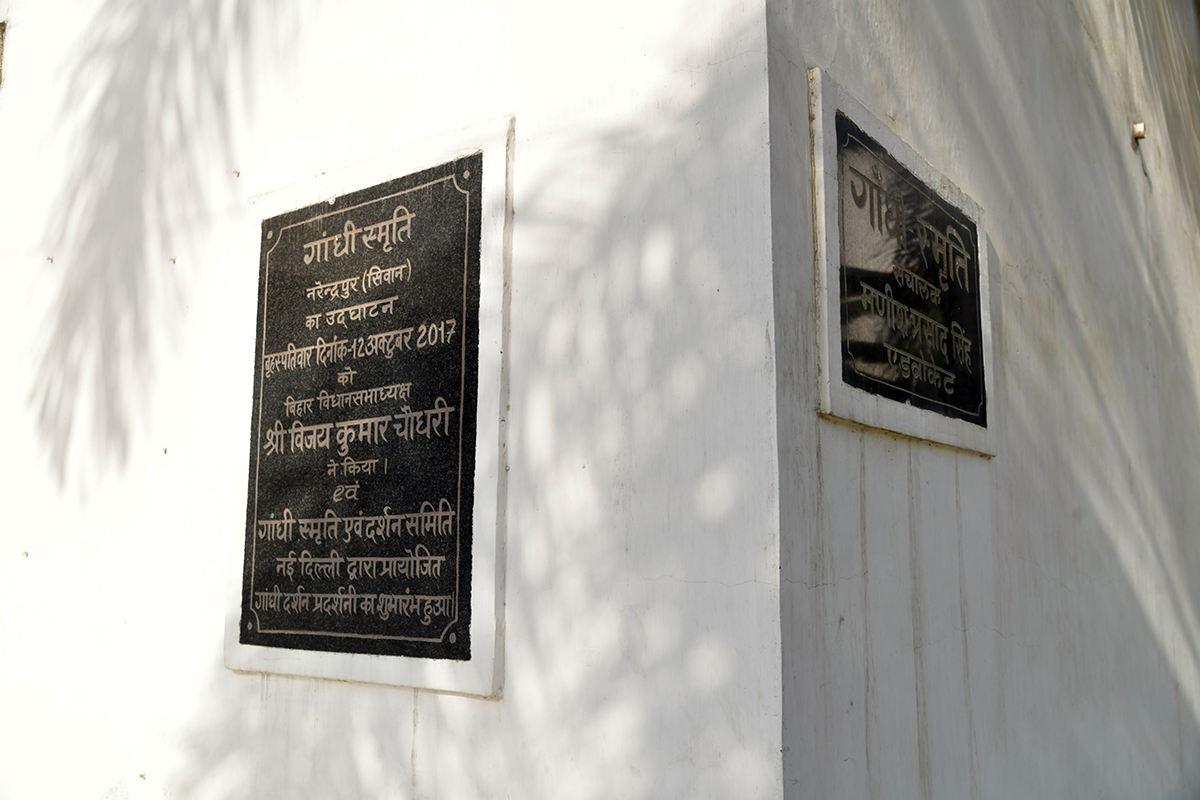 गांधी स्मृति
नरेन्द्रपुर (सिवान)
का उद्घाटन
बृहस्पतिवार दिनांक-12 अक्टुबर 2017
को
बिहार विधानसभाध्यक्ष
श्री विजय कुमार चौधरी
ने किया।
एवं
गांधी स्मृति एवं दर्शन समिति
नई दिल्ली द्वारा प्रायोजित
गांधी दर्शन प्रदर्शनी का शुभारंभ हुआ
गाँधी स्मृति
संचालक
मणीष प्रसाद सिंह
एडवोकेट